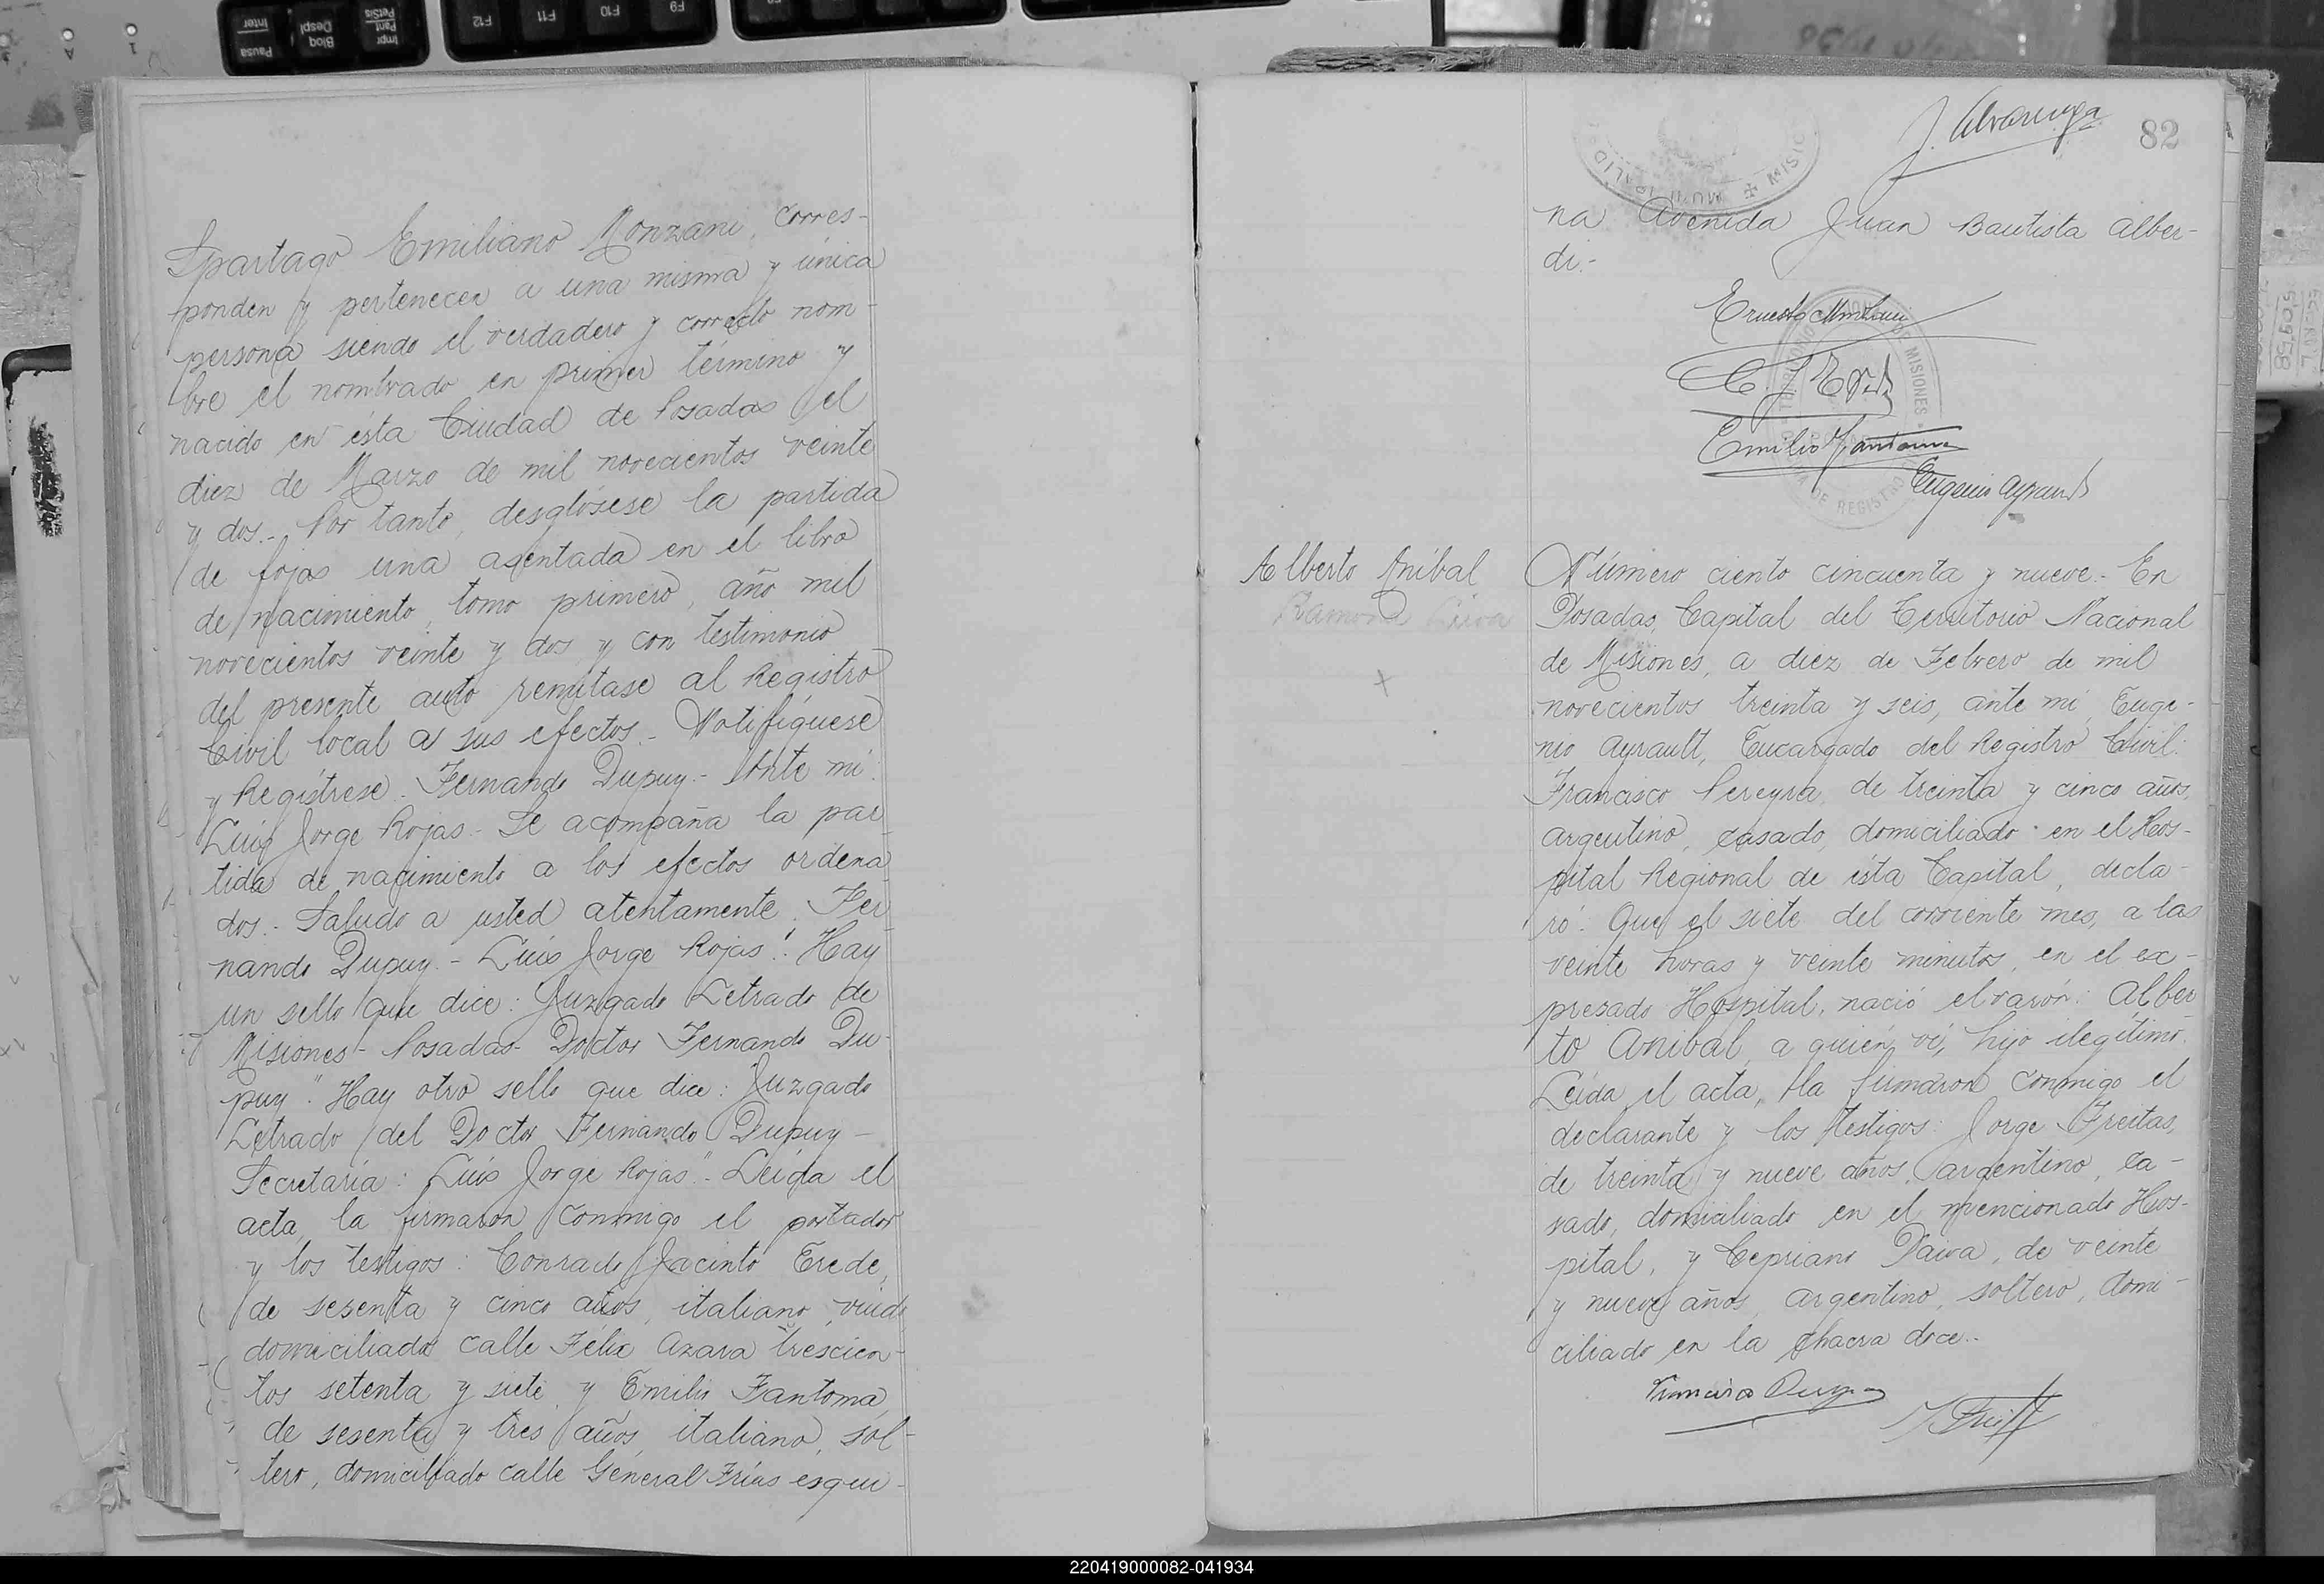 Spartago Emiliano Monzani, corres-
ponden y pertenecen a una misma y única
persona siendo el verdadero y correcto nom-
bre el nombrado en primer término y
nacido en ésta Ciudad de Posadas el
diez de Marzo de mil novecientos veinte
y dos.- Por tanto, desglósese la partida
de fojas una asentada en el libro
de nacimiento, tomo primero, año mil
novecientos veinte y dos y con testimonio
del presente auto remítase al Registro
Civil local a sus efectos.- Notifíquese
y Regístrese. Fernando Dupuy.- Ante mí:
Luis Jorge Rojas.- Se acompaña la par
tida de nacimiento a los efectos ordena
dos.- Saludo a usted atentamente. Fer
nando Dupuy.- Luis Jorge Rojas". Hay
un sello que dice: Juzgado Letrado de
Misiones- Posadas- Doctor Fernando Du-
puy". Hay otro sello que dice: Juzgado
Letrado del Doctor Fernando Dupuy-
Secretaria: Luis Jorge Rojas".- Leída el
acta, la firmaron conmigo el portador
y los testigos: Conrado Jacinto Erede,
de sesenta y cinco años, italiano, viudo
domiciliado calle Félix Azara trescien-
tos setenta y siete, y Emilio Fantoma,
de sesenta y tres años, italiano, sol-
tero, domiciliado calle General Frías esqui-
J. Alvarenga
82
na Avenida Juan Bautista Alber-
di.-
Ernesto
Emilio Fantoma
Eugenio Ayrault
MISIONES
DE REGISTRO
Alberto Anibal
Ramona
Número ciento cincuenta y nueve.- En
Posadas, Capital del Territorio Nacional
de Misiones, a diez de Febrero de mil
novecientos treinta y seis, ante mí, Euge-
nio Ayrault, Encargado del Registro Civil:
Francisco Pereyra, de treinta y cinco años,
argentino, casado, domiciliado en el Hos-
pital Regional de ésta Capital, decla-
ró: Que el siete del corriente mes, a las
veinte horas y veinte minutos, en el ex-
presado Hospital, nació el varón: Alber
to Anibal, a quién ví, hijo ilegítimo.
Leída el acta, la firmaron conmigo el
declarante y los testigos: Jorge Freitas,
de treinta y nueve años, argentino, ca-
sado, domiciliado en el mencionado Hos-
pital, y Cepriano Paiva, de veinte
y nueve años, argentino, soltero, domi-
ciliado en la chacra doce.-
Francisco Pereyra
220419000082-041934